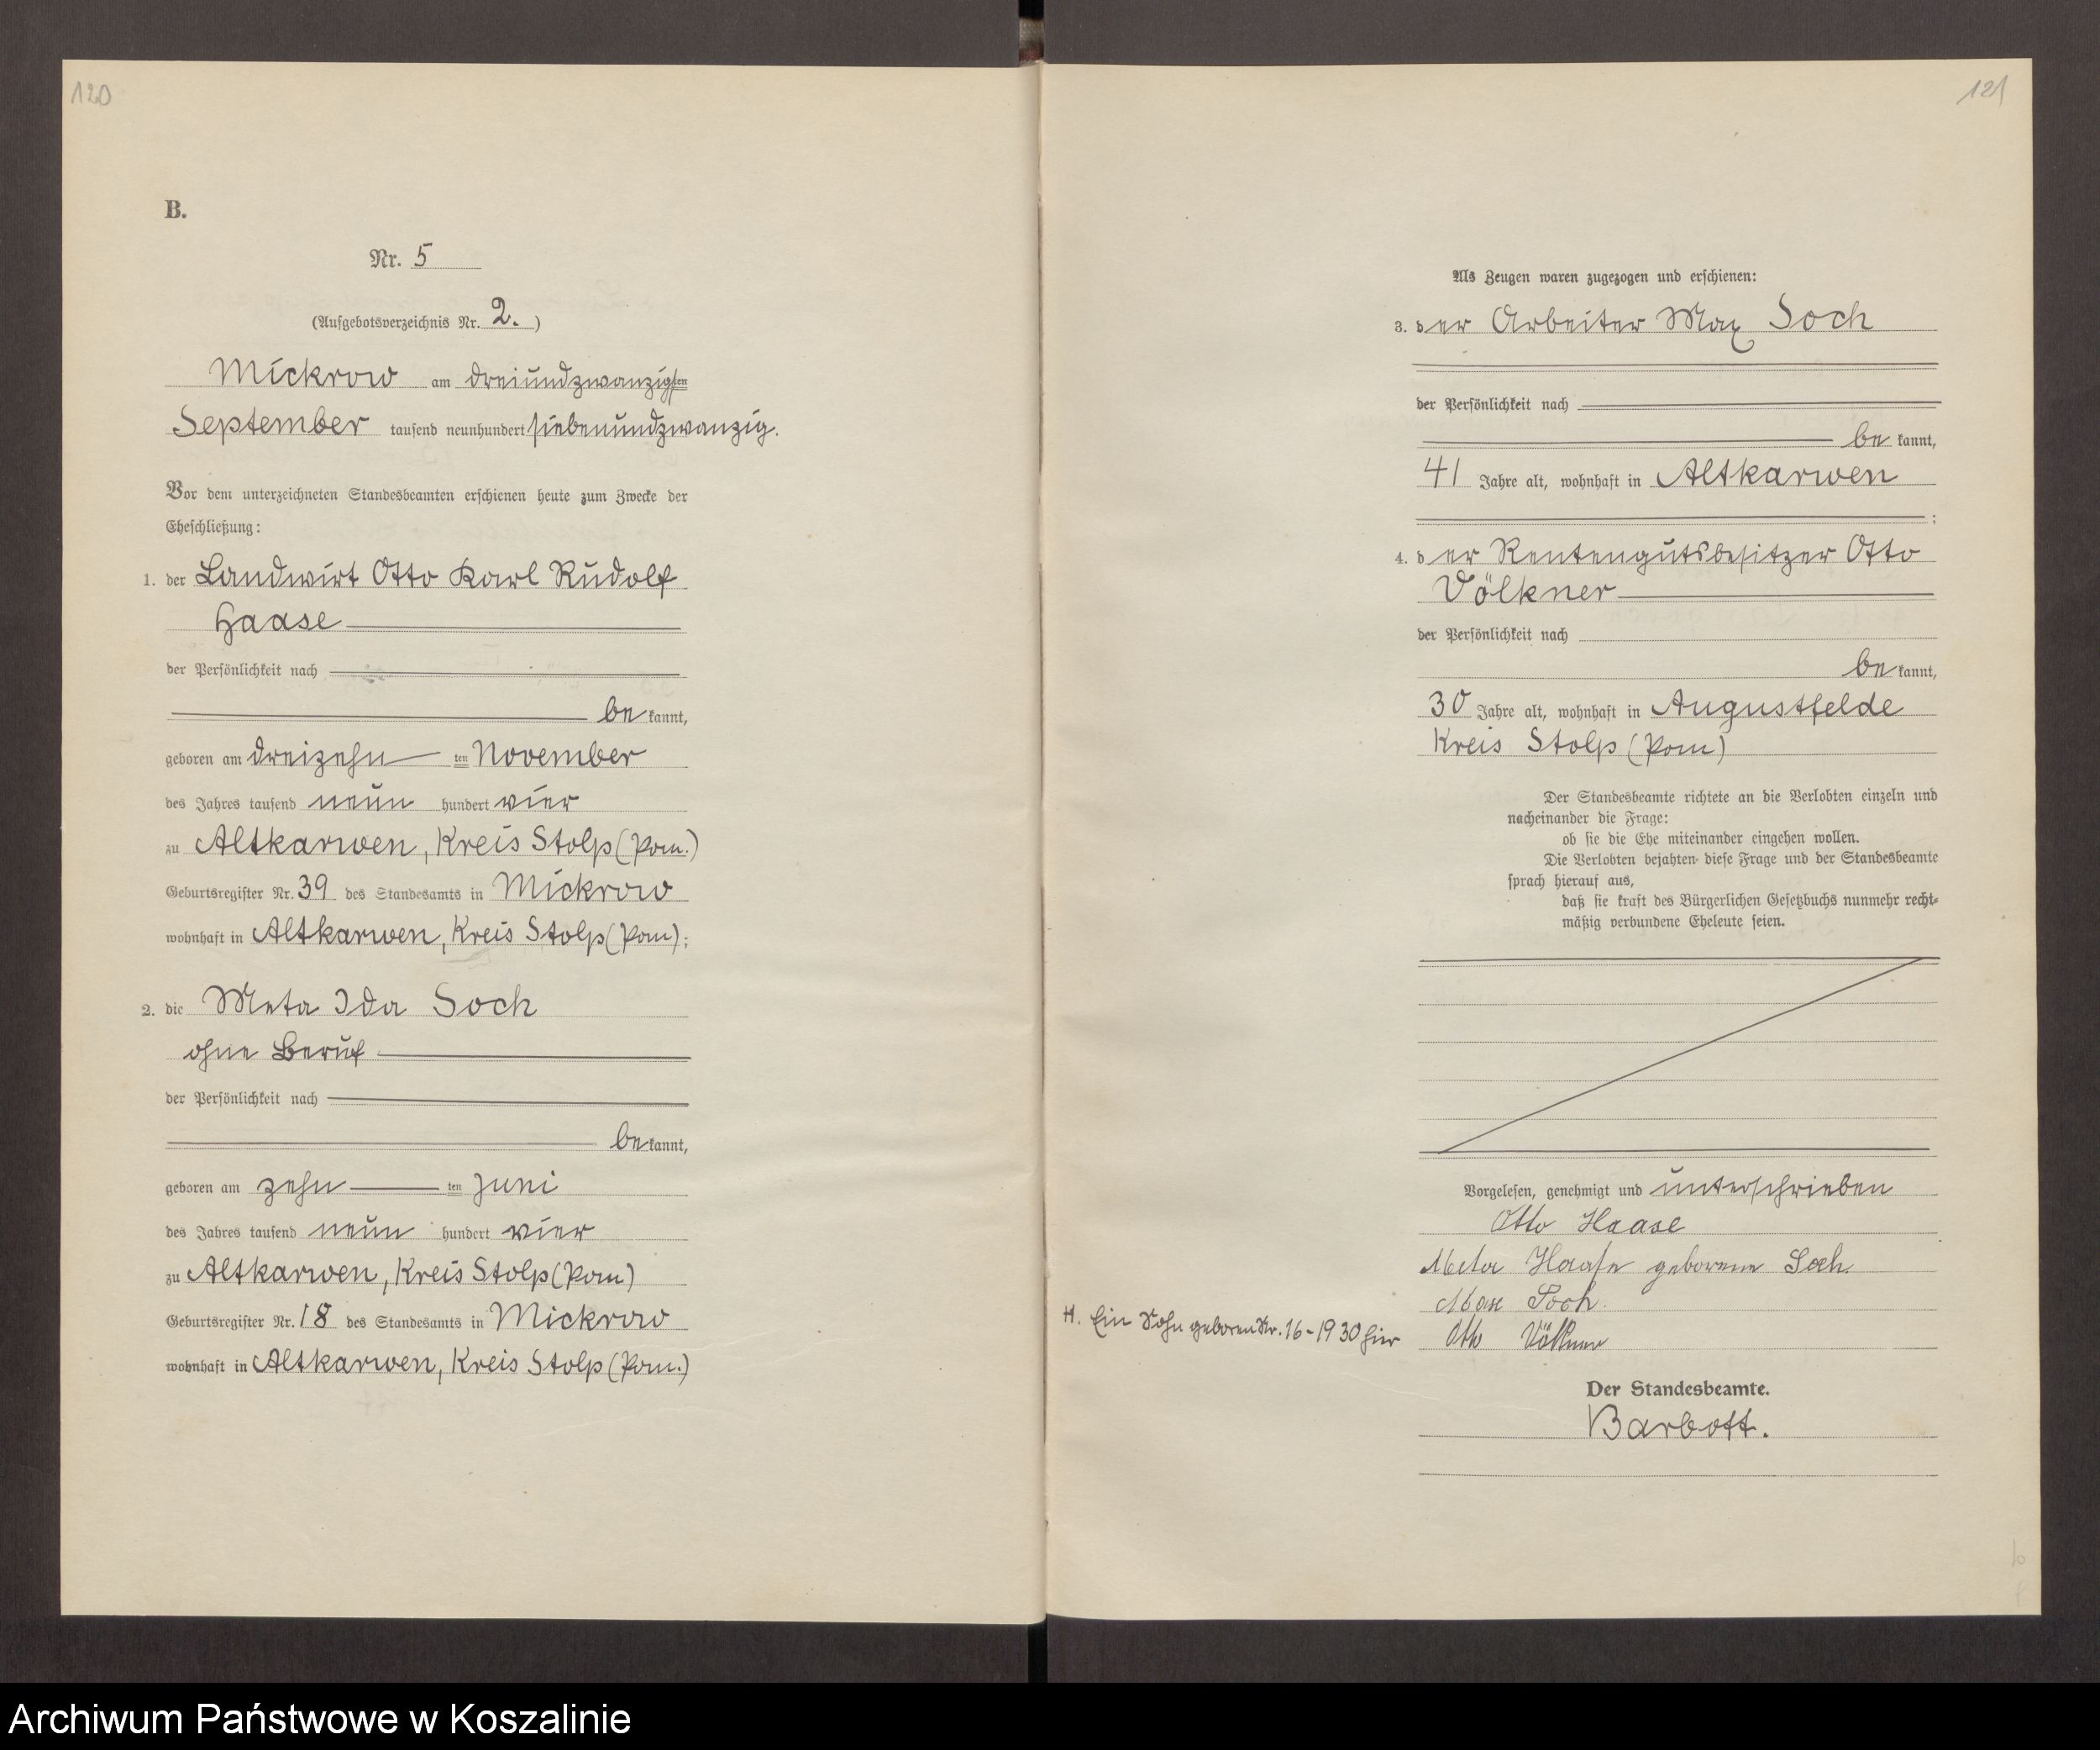 120
B.
Nr. 5
(Aufgebotsverzeichnis Nr. 2.)
Mickrow am dreiundzwanzigsten
September tausend neunhundert siebenundzwanzig.
Vor dem unterzeichneten Standesbeamten erschienen heute zum Zwecke der
Eheschließung:
1. der Landwirt Otto Karl Rudolf
Haase
der Persönlichkeit nach
be kannt,
geboren am dreizehn ten November
des Jahres tausend neun hundert vier
zu Altkarwen, Kreis Stolp (Pom.)
Geburtsregister Nr. 39 des Standesamts in Mickrow
wohnhaft in Altkarwen, Kreis Stolp (Pom);
2. die Meta Ida Soch
ohne Beruf
der Persönlichkeit nach
be kannt,
geboren am zehn ten Juni
des Jahres tausend neun hundert vier
zu Altkarwen, Kreis Stolp (Pom)
Geburtsregister Nr. 18 des Standesamts in Mickrow
wohnhaft in Altkarwen, Kreis Stolp (Pom.)
121
Als Zeugen waren zugezogen und erschienen:
3. der Arbeiter Max Soch
der Persönlichkeit nach
be kannt,
41 Jahre alt, wohnhaft in Altkarwen
;
4. der Rentengutsbesitzer Otto
Völkner
der Persönlichkeit nach
be kannt,
30 Jahre alt, wohnhaft in Augustfelde
Kreis Stolp (Pom)
Der Standesbeamte richtete an die Verlobten einzeln und
nacheinander die Frage:
ob sie die Ehe miteinander eingehen wollen.
Die Verlobten bejahten diese Frage und der Standesbeamte
sprach hierauf aus,
daß sie kraft des Bürgerlichen Gesetzbuchs nunmehr recht-
mäßig verbundene Eheleute seien.
Vorgelesen, genehmigt und unterschrieben
Otto Haase
Meta Haase geborene Soch.
Max Soch.
Otto Völkner
H. Ein Sohn geboren Nr. 16-1930 hier
Der Standesbeamte.
Barbott.
Archiwum Państwowe w Koszalinie